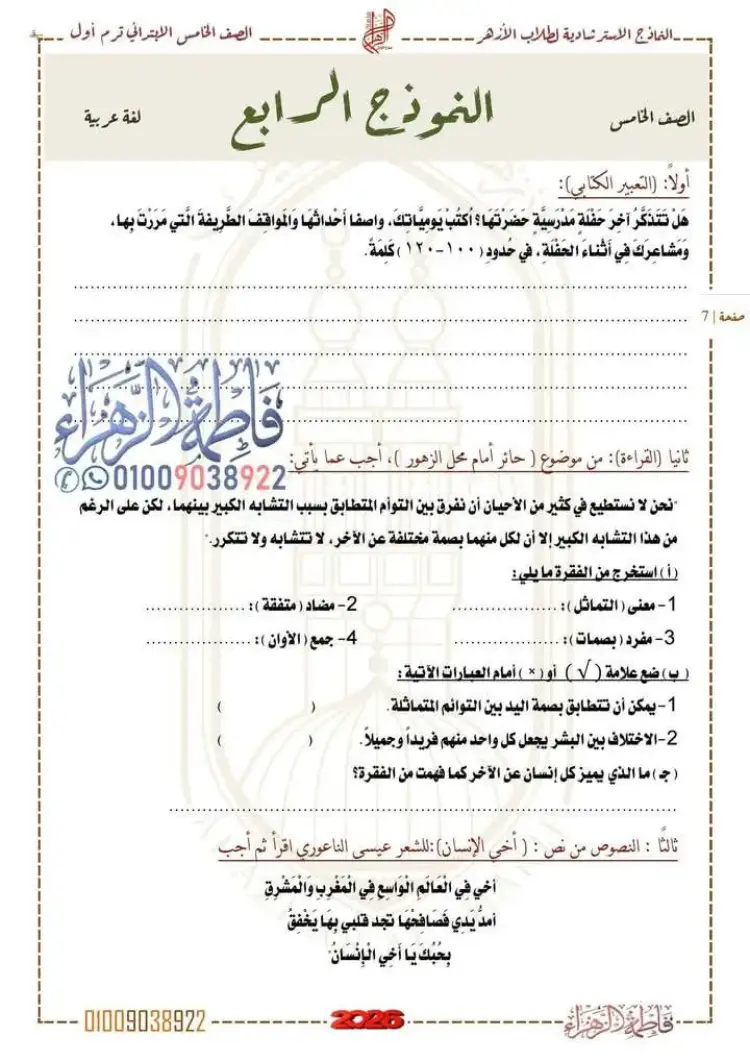 النماذج الاسترشادية لطلاب الأزهر
الأزهر
الصف الخامس الابتدائي ترم أول
الصف الخامس
النموذج الرابع
لغة عربية
أولاً: (التعبير الكتابي):
هَلْ تَتَذَكَّرُ آخِرَ حَفْلَةٍ مَدْرَسِيَّةٍ حَضَرْتَهَا؟ اُكْتُبْ يَوميَّاتِكَ، واصفا أحْدَاثَهَا وَالمَواقِفَ الطَّرِيفةَ الَّتي مَرَرْتَ بِها،
وَمَشاعِرَكَ فِي أثْناءَ الحَفْلَةِ، في حُدودِ (١٠٠-١٢٠) كَلِمَةً.
صفحة | 7
فاطمة الزهراء
01009038922
ثانيا (القراءة): من موضوع ( حائر أمام محل الزهور )، أجب عما يأتي:
"نحن لا نستطيع في كثير من الأحيان أن نفرق بين التوأم المتطابق بسبب التشابه الكبير بينهما، لكن على الرغم
من هذا التشابه الكبير إلا أن لكل منهما بصمة مختلفة عن الآخر، لا تتشابه ولا تتكرر."
(أ) استخرج من الفقرة ما يلي:
1- معنى (التماثل): .................. 2- مضاد (متفقة): .................
3- مفرد (بصمات): .................. 4- جمع (الأوان): .................
(ب) ضع علامة (√) أو (×) أمام العبارات الآتية:
1- يمكن أن تتطابق بصمة اليد بين التوائم المتماثلة. ( )
2- الاختلاف بين البشر يجعل كل واحد منهم فريداً وجميلاً. ( )
(جـ) ما الذي يميز كل إنسان عن الآخر كما فهمت من الفقرة؟
ثالثًا : النصوص من نص : ( أخي الإنسان):للشعر عيسى الناعوري اقرأ ثم أجب
أخي فِي الْعَالَمِ الْوَاسِعِ فِي الْمَغْرِبِ وَالْمَشْرِقِ
أمدُّ يَدِي فَصَافِحْهَا تجد قلبي بِهَا يَخْفِقُ
بِحُبُكَ يَا أخِي الْإِنْسَانُ"
فاطمة الزهراء
2026
01009038922